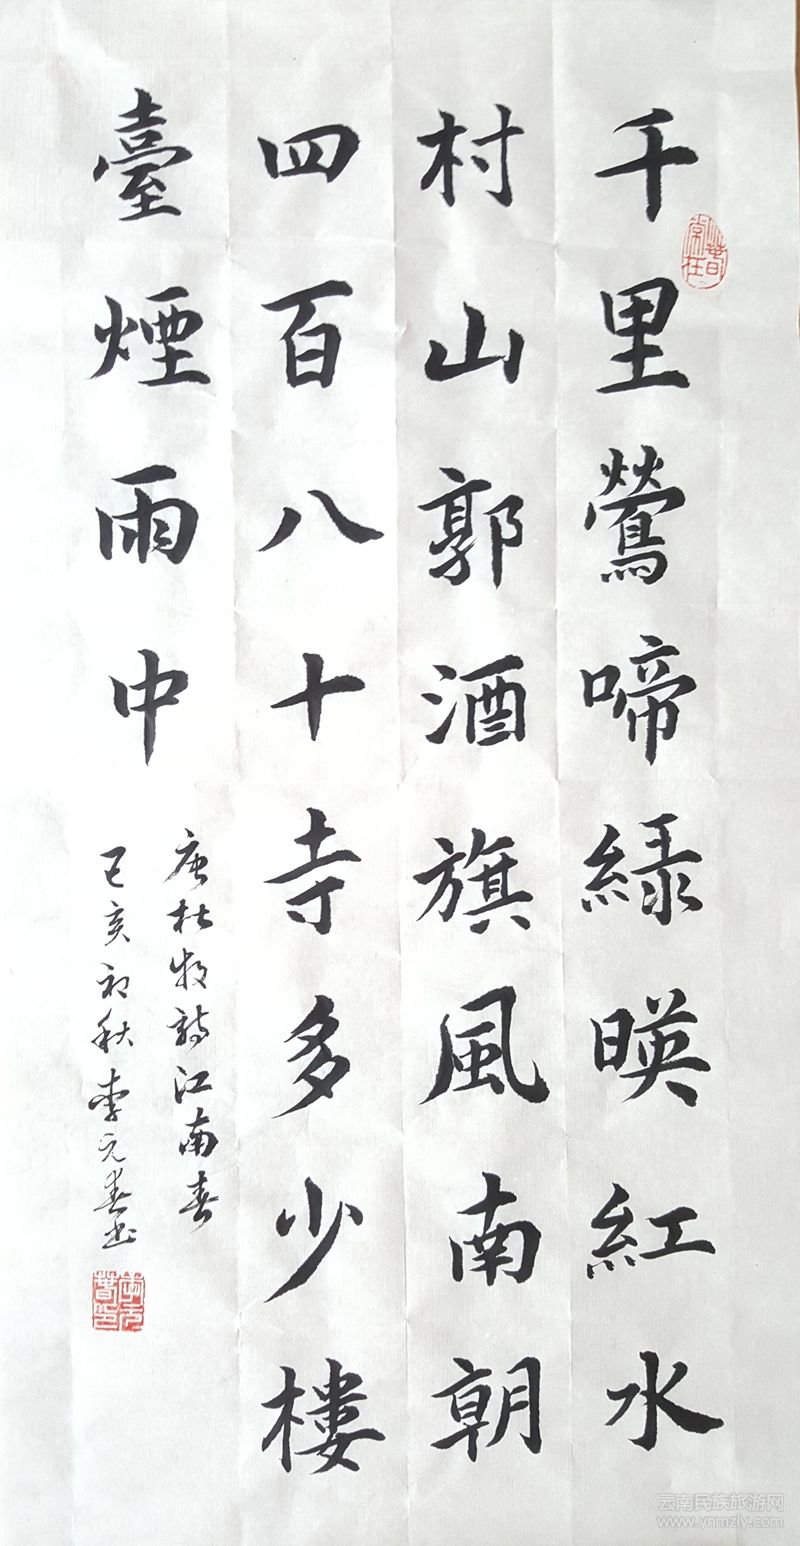 千里鶯啼綠暎紅水
村山郭酒旗風南朝
四百八十寺多少樓
臺煙雨中
唐杜牧詩江南春
己亥初秋李元春书
云南民族旅游网
www.ynmzly.com